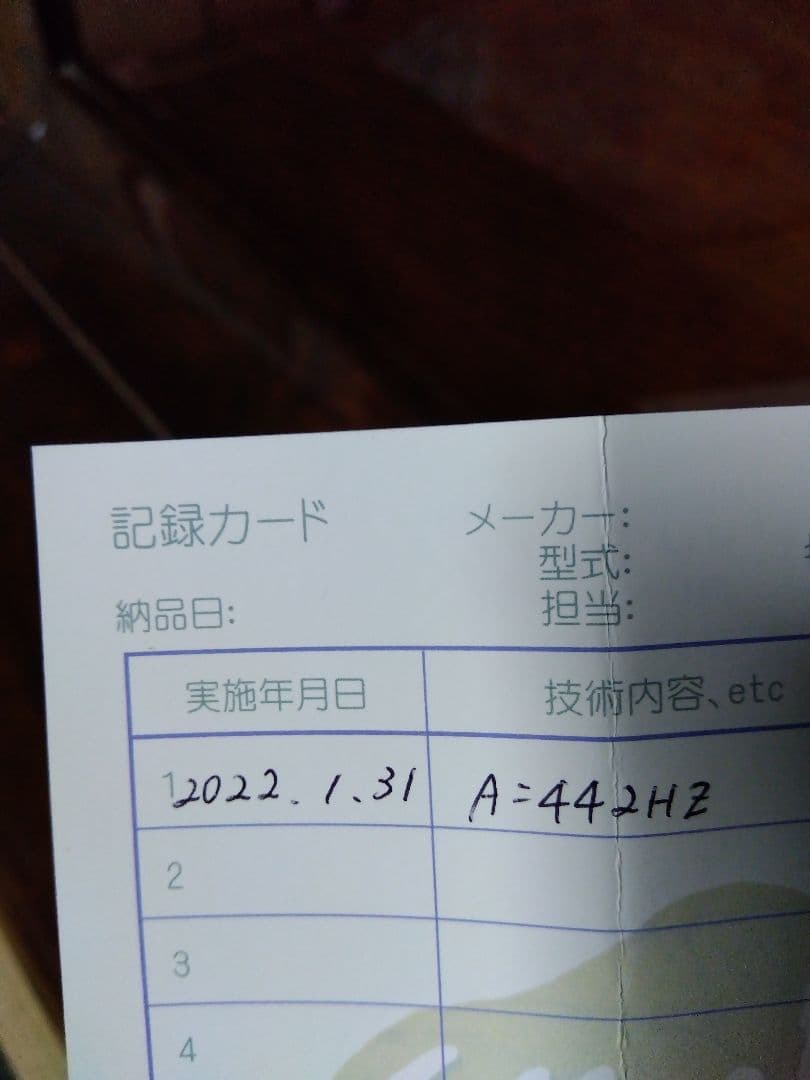 記録カード
メーカー:
型式:
担当:
納品日:
実施年月日 技術内容、etc
1 2022.1.31 A=442HZ
2
3
4